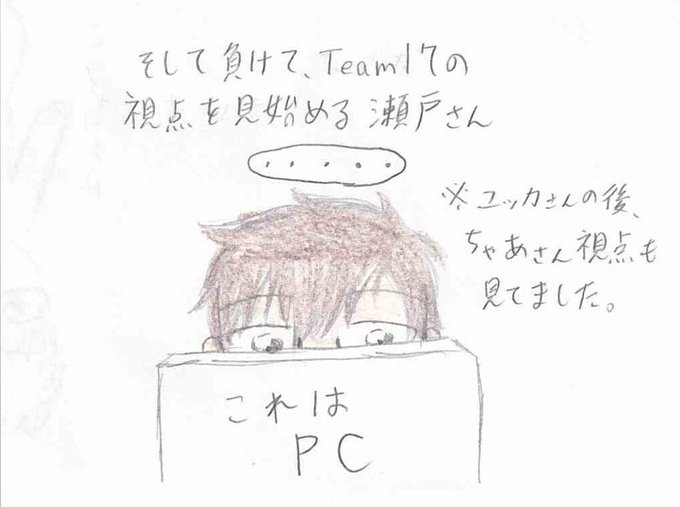 そして負けて、Team17の
視点を見始める瀬戸さん
・・・・・
※ユッカさんの後、
ちゃあさん視点も
見てました。
これは
PC